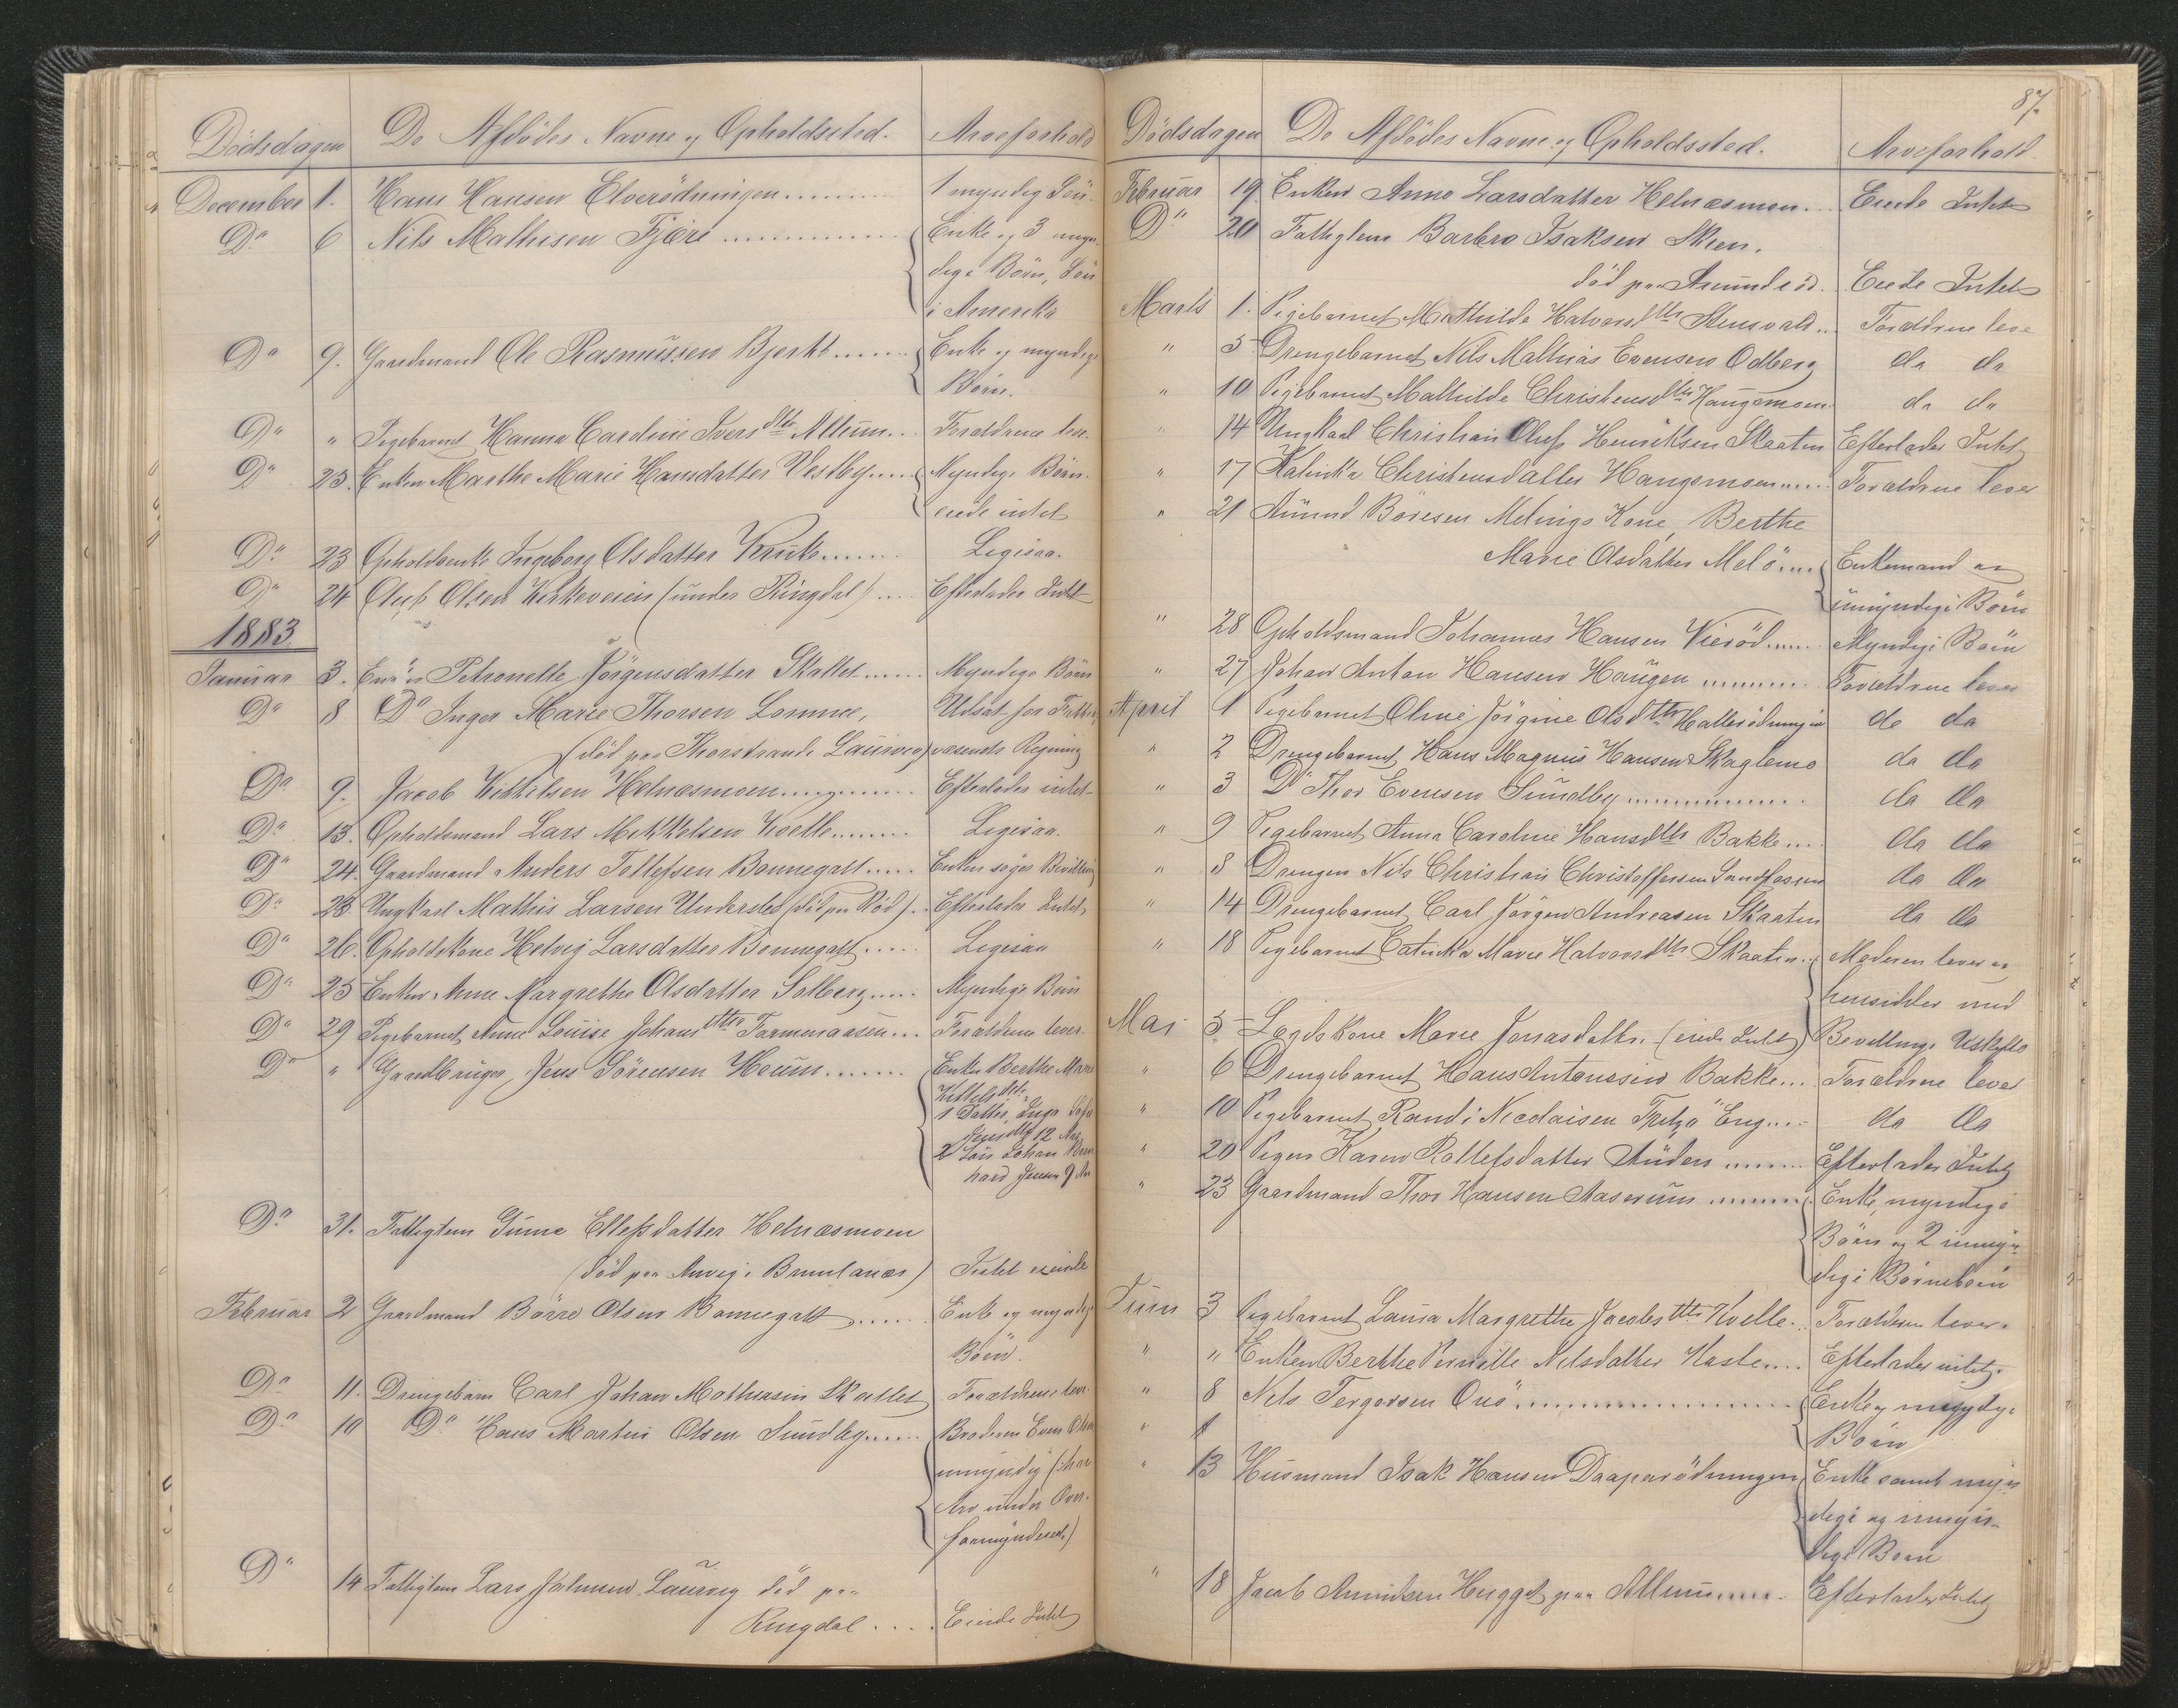 Dödsdagen De Afdödes Navne og Opholdssted. Arveforhold
December 1. Hans Hansen Elverödningen 1 myndig Sön
Do 6 Nils Mathisen Fjære Enke og 3 myn-
dige Börn, Sön
i Amerika
Do 9. Gaardmand Ole Rasmussen Bjerke Enke og myndige
Börn.
Do " Pigebarnet Hanna Caroline Ivers dtr Allum Forældrene lev.
Do 23. Enken Marthe Marie Hansdatter Vestby Myndige Börn.
eiede intet
Do 23 Opholdsenke Ingeborg Olsdatter Ligesaa.
Do 24 Oluf Olsen Kirkeveien (under Ringdal) Efterlader Intet
1883.
Januar 3. Enken Petronelle Jörgensdatter Skallet Myndige Börn
Do 8 Do Inger Marie Thorsen Lomme, Udsat for Fattig
(död paa Thorstrand i Laurvig) væsenets Regning
Do 9. Jacob Kittilsen Helnæsmoen Efterlader intet
Do 13. Opholdsmand Lars Mikkelsen Kvelle Ligesaa.
Do 24. Gaardmand Anders Tollefsen Bonnegalt Enken söger Bevilling
Do 23 Ungkarl Mathis Larsen Undersles (död paa Röd) Efterlader Intet
Do 26. Opholdskone Helvig Larsdatter Bonnegalt Ligesaa
Do 25 Enken Anne Margrethe Olsdatter Solberg Myndige Börn
Do 29 Pigebarnet Anne Louise Johans dtr Forældrene lever.
Do " Gaardbruger Jens Sörensen Heum Enke Berthe Marie
Kittels dtr.
1 Datter, Inga Sofie
Jensdtr 12 Aar
2 Sön Johan Bern
hard Jensen 9 Aar
Do 31. Fattiglem Gunne Ellefsdatter Helnæsmoen
(död paa Anvig i Brunlanæs) Intet eiende
Februar 2 Gaardmand Börre Olsen Bonnegalt Enke og myndige
Börn.
Do 11. Drengebarn Carl Johan Mathiasen Skallet Forældrene lever
Do 10 Do Hans Martin Olsen Sundby Broderen Even Olsen
umyndig (har
Arv under Over-
formynderiet)
Do 14 Fattiglem Lars Johnsen Laurvig död paa
Ringdal Eiende Intet
87.
Dödsdagen De Afdödes Navne og Opholdssted. Arveforhold.
Februar 19. Enken Anne Larsdatter Helnæsmoen Eiede Intet
Do 20 Fattiglem Barbro Isaksen Skien.
död paa Amundröd. Eiede Intet
Marts 1. Pigebarnet Mathilde Halvorsdtr Stensvold Forældrene leve
" 5 Drengebarnet Nils Mathias Evensen Odberg do do
" 10 Pigebarnet Mathilde Christensdtr Haugsmoen do do
" 14 Ungkarl Christian Oluf Henriksen Skaaten Efterlader Intet
" 17 Kalinka Christensdatter Haugsmoen Forældrene lever
" 21 Amund Böresen Melings Kone, Berthe
Marie Olsdatter Melö Enkemand og
umyndige Börn
" 28 Opholdsmand Johannes Hansen Vieröd Myndige Börn
" 27 Johan Anton Hansen Haugen Forældrene lever
April 1 Pigebarnet Oline Jörgine Olsdtr Hallerödningen do do
" 2 Drengebarnet Hans Magnus Hansen Skaglemo do do
" 3 Do Thor Evensen Sundby do do
" 9 Pigebarnet Anna Caroline Hansdtr Bakke do do
" 8 Drengen Nils Christian Christoffersen Sandfossen do do
" 14 Drengebarnet Carl Jörgen Andreasen Skaaten do do
" 18 Pigebarnet Catinka Marie Halvorsdtr Skaaten Moderen lever og
hensidder med
Mai 5 Legdskone Marie Jonasdatter. (eiede Intet) Bevilling i Uskifte
" 6 Drengebarnet Hans Antonsen Bakke Forældrene lever
" 10 Pigebarnet Randi Nicolaisen Fritzö Eng do do
" 20 Pigen Karen Rollefsdatter Auden Efterlader Intet
" 23 Gaardmand Thor Hansen Aaserum Enke, myndige
Börn og 2 umyn-
dige Börnebörn
Juni 3 Pigebarnet Laura Margrethe Jacobs dtr Kvelle Forældrene lever.
" " Enken Berthe Pernille Nilsdatter Haste Efterlader intet.
" 8 Nils Torgersen Onö Enke og myndige
" Börn
" 13 Husmand Isak Hansen Daaparödningen Enke samt myn-
dige og umyn-
dige Börn
" 18 Jacob Amundsen Hugget paa Allum Efterlader Intet